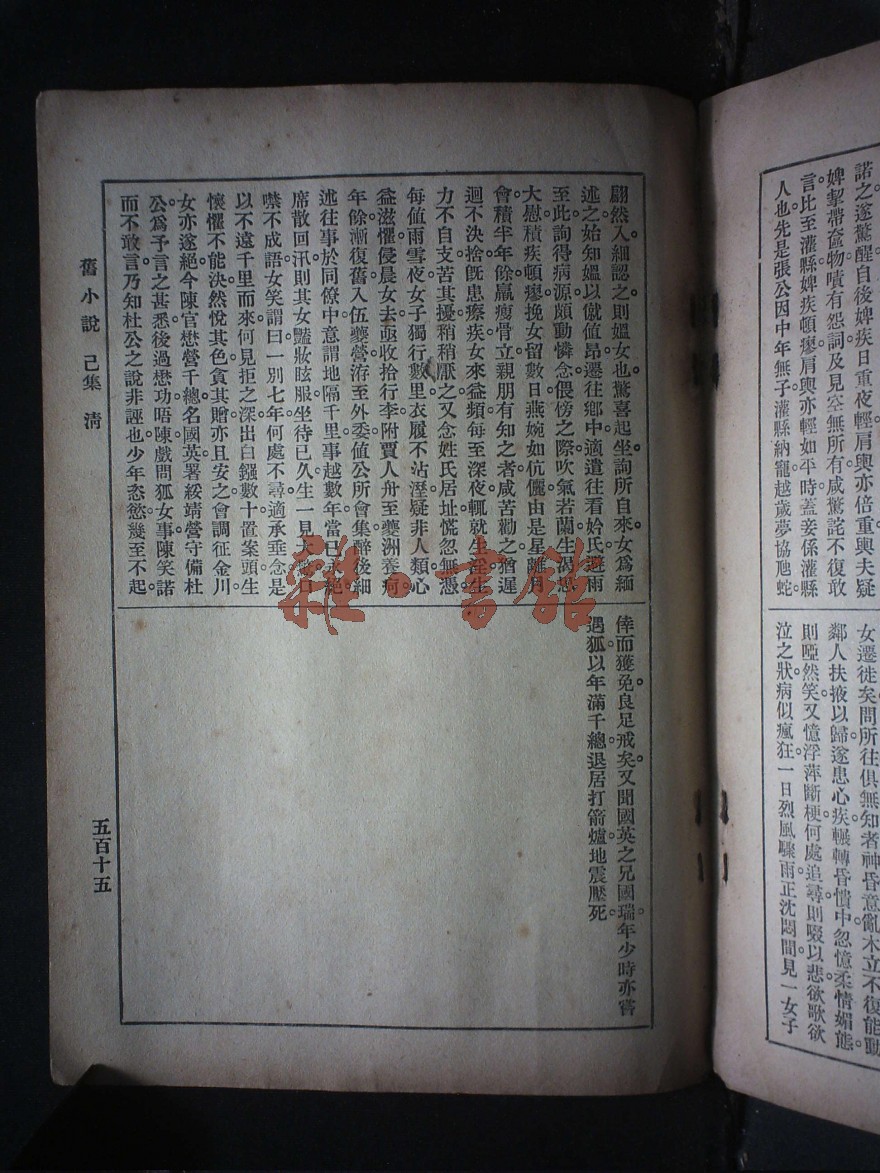 諾之遂驚醒自後婢疾日重夜輕肩輿亦倍重輿夫疑
婢挈帶奩物嘖有怨詞及見空無所有咸驚詫不復敢
言比至灌縣婢疾頓瘳肩輿亦輕如平時蓋妾係灌縣
人也先是張公因中年無子灌縣納寵越歲夢協虺蛇。
女遷徙矣問所往俱無知者神昏意亂木立不復能動
鄰人扶掖以歸遂患心疾輾轉昏憒中忽憶柔情媚態。
則啞然笑又憶浮萍斷梗何處追尋則啜以悲欲歌欲
泣之狀病似瘋狂一日烈風驟雨正沈悶間見一女子
翩然入細認之則媼女也驚喜起坐詢所自來女爲緬
述之始知媼以僦值昂遷往鄉中適遣往看姈氏避雨
至此詢得病源頗動憐念偎傍之際吹氣若蘭生渴思
大慰積疾頓瘳挽女留數日燕婉如伉儷由是星離月
會積半年餘羸瘦骨立親朋有知之者咸苦勸之猶遲
迴不決捨旣患瘵疾女來益頻每至深夜輒就生淫生
力不自支苦其擾稍稍厭之又念姓氏居址慌忽無憑
每値雨雪夜女子獨行數里衣履不沾溼疑非人類心
益滋懼侵晨女去亟收拾行李附賈人舟至夔洲養疴
年餘漸復舊入伍夔營洊至外委値公所會集醉後細
述往事於同僚中意謂地隔千里事越數年當已永絕
席散回汛則其女豔妝眩服坐待已久生一見大口
噤不成語女笑謂曰一別七年何處不尋適承垂念是
以不遠千里而來何見拒之深出白鏹數十置案頭生
懷懼不能決然悅其色貪其贈亦且安之會調征金川
女亦遂絕今陳官懋營千總名國英署綏靖營守備杜
公爲予言之甚悉後過懋功晤陳戲問狐女事陳笑諾
而不敢言乃知杜公之說非誣也少年恣慾幾至不起。
倖而獲免良足戒矣又聞國英之兄國瑞年少時亦嘗
遇狐以年滿千總退居打箭爐地震壓死
舊小說 己集 淸
五百十五
雜書館